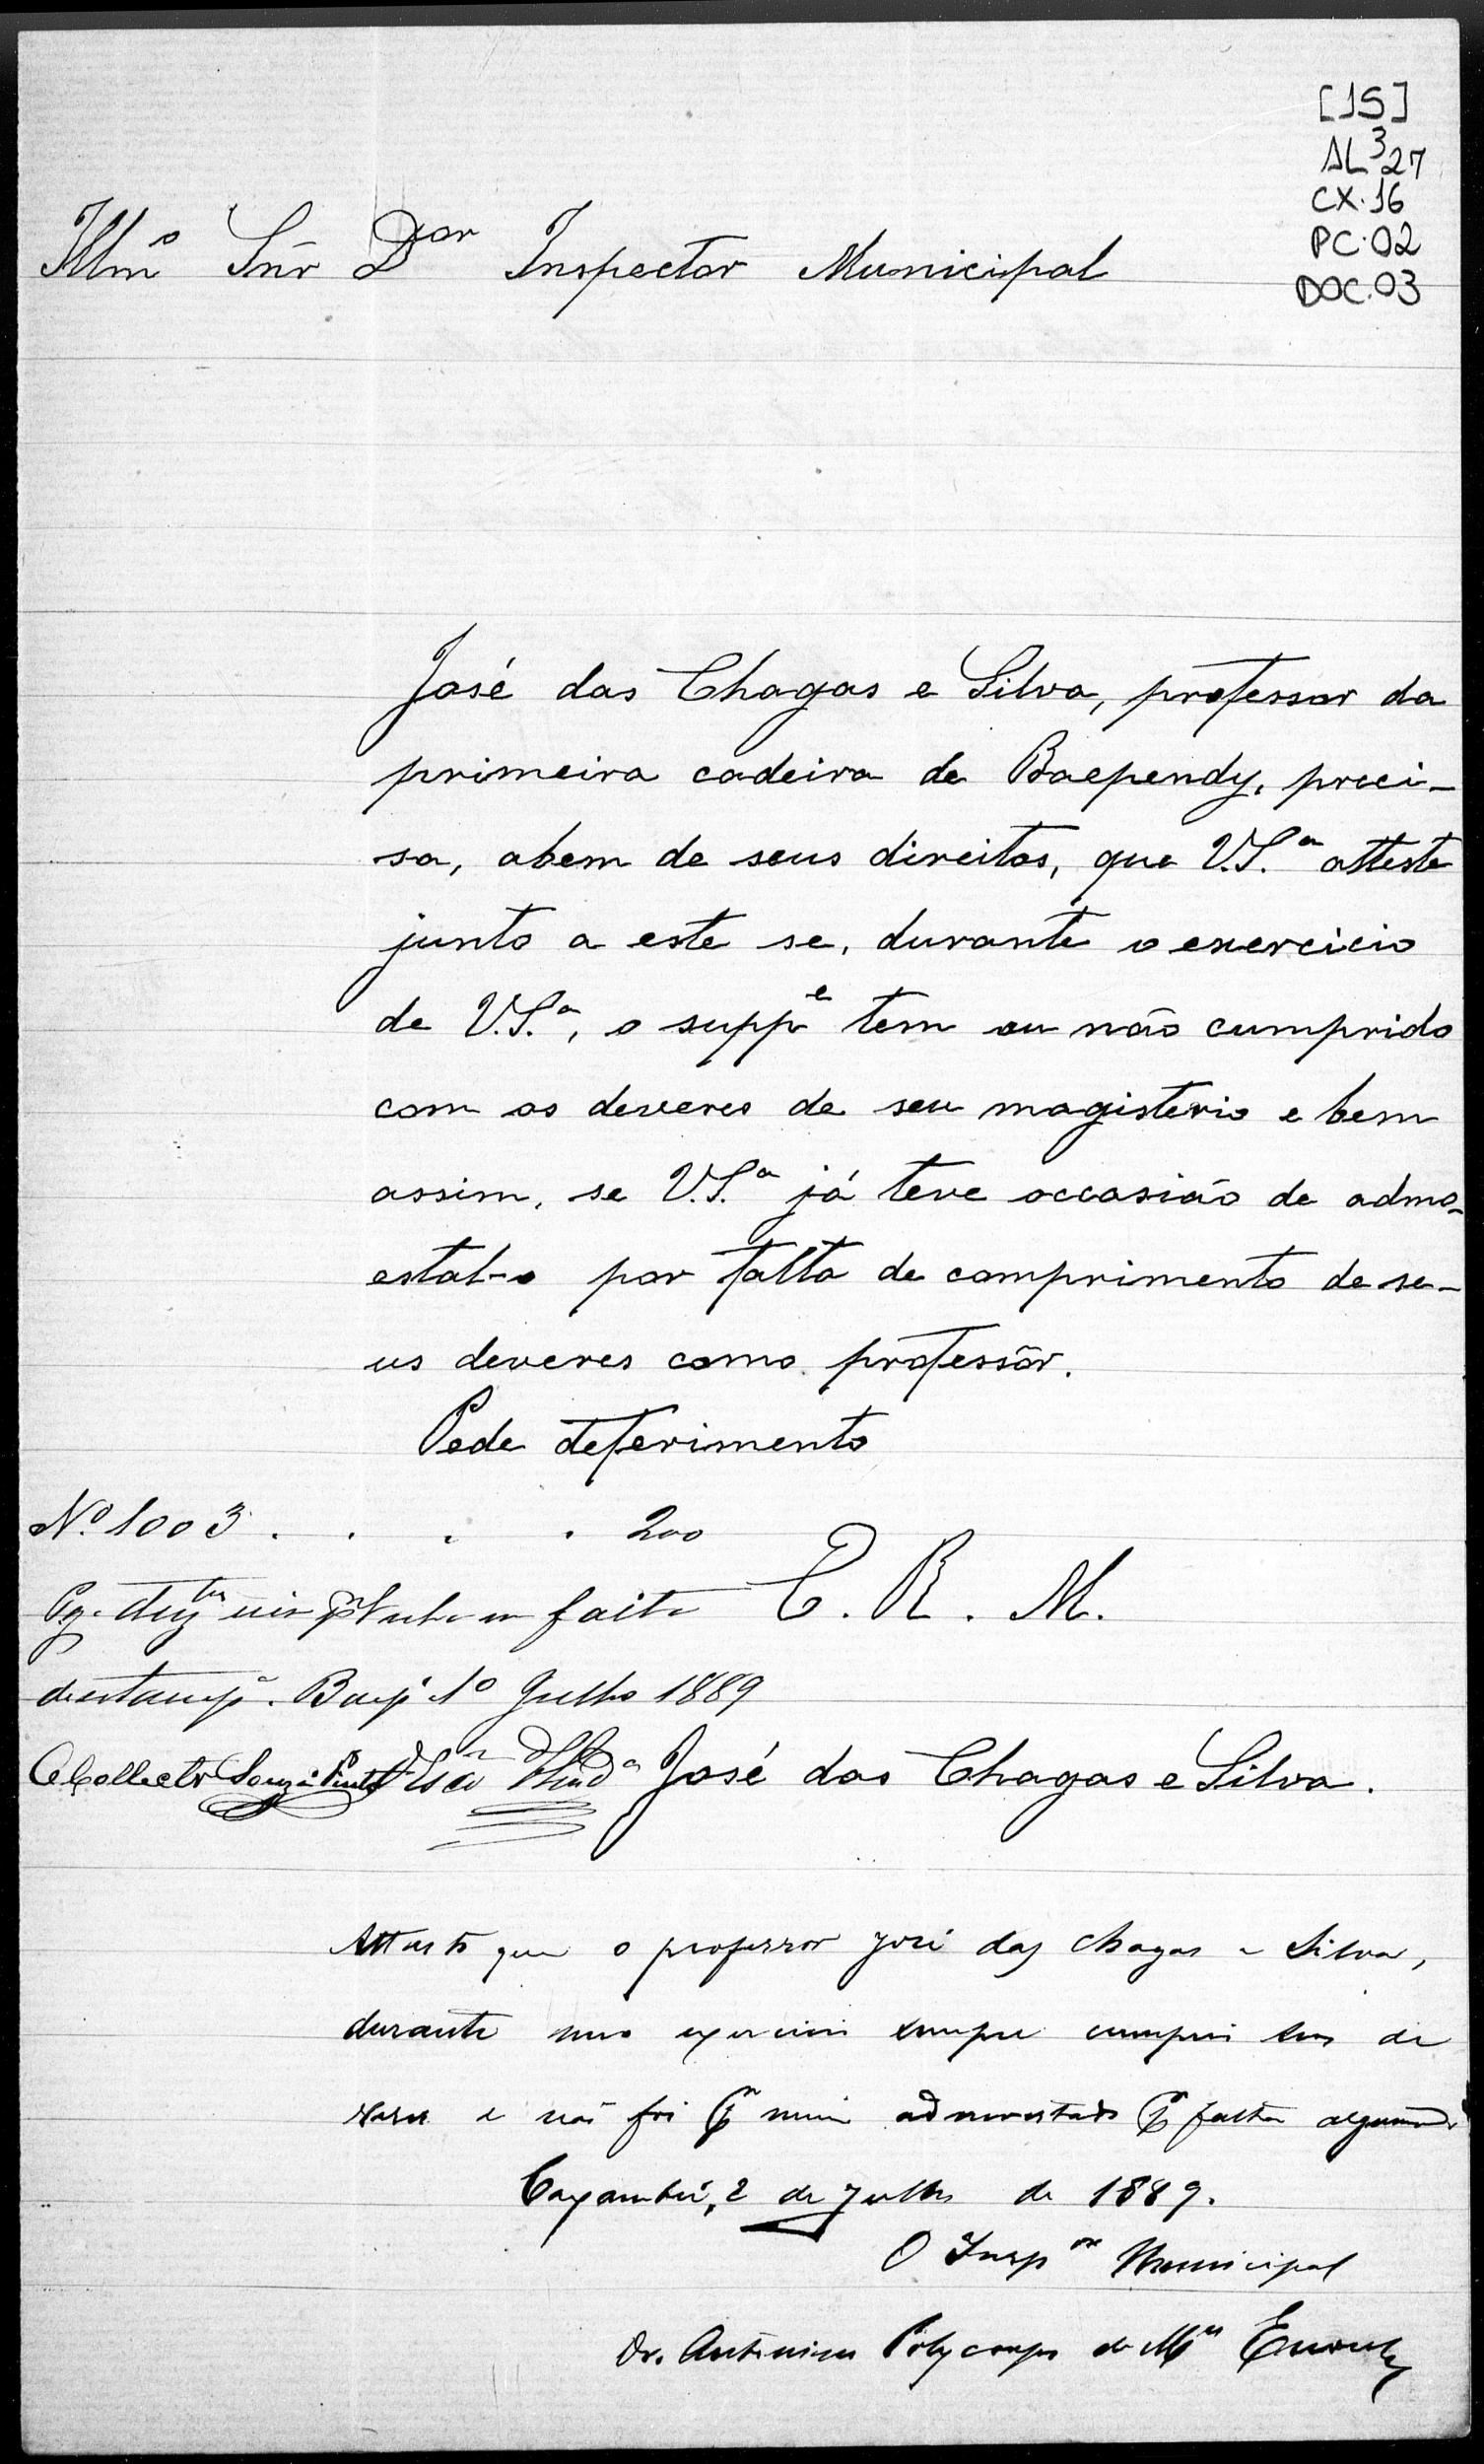 [15]
AL³27
CX.16
PC.02
DOC.03
Illmº Snr Dor Inspector Municipal
José das Chagas e Silva, professor da
primeira cadeira de Baependy, preci-
sa, abem de seus direitos, que V.S.ª atteste
junto a este se, durante o exercicio
de V.S.ª, o suppe tem ou não cumprido
com os deveres de seu magisterio e bem
assim, se V.S.ª já teve occasião de admo-
estal-o por falta de comprimento de se-
us deveres como professôr.
Pede deferimento
Nº 1003 . . . . 200
Pg. duztos reis falta
E. R. M.
Baepy 1º Julho 1889
O Collector Souza Pinto
José das Chagas e Silva.
Attesto que o professor José das Chagas e Silva,
durante meo exercicio sempre cumprio seus de
veres e não foi pr mim admoestado pr falta alguma
Caxambú, 2 de Julho de 1889.
O Inspor Municipal
Dr. Antonio Polycarpo de Mes